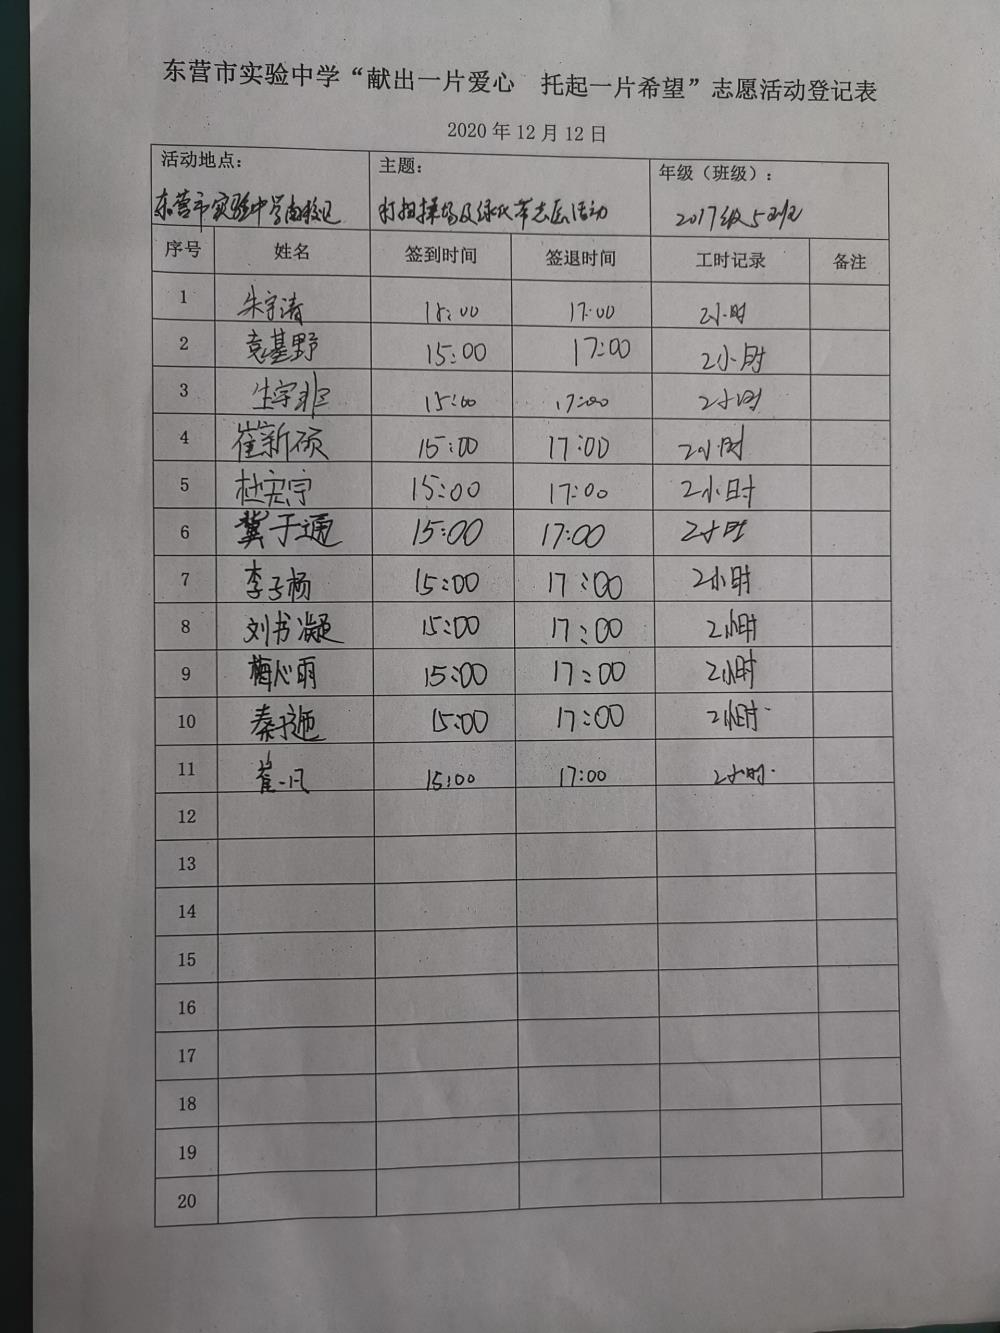 东营市实验中学“献出一片爱心 托起一片希望”志愿活动登记表
2020年12月12日
活动地点: 主题: 年级（班级）:
东营市实验中学南校区 打扫操场及绿化带志愿活动 2017级5班
序号 姓名 签到时间 签退时间 工时记录 备注
1 朱宇清 15:00 17:00 2小时
2 袁基野 15:00 17:00 2小时
3 生宇非 15:00 17:00 2小时
4 崔新硕 15:00 17:00 2小时
5 杜宏宇 15:00 17:00 2小时
6 冀于通 15:00 17:00 2小时
7 李子杨 15:00 17:00 2小时
8 刘书凝 15:00 17:00 2小时
9 梅心雨 15:00 17:00 2小时
10 秦 15:00 17:00 2小时
11 崔一凡 15:00 17:00 2小时
12
13
14
15
16
17
18
19
20